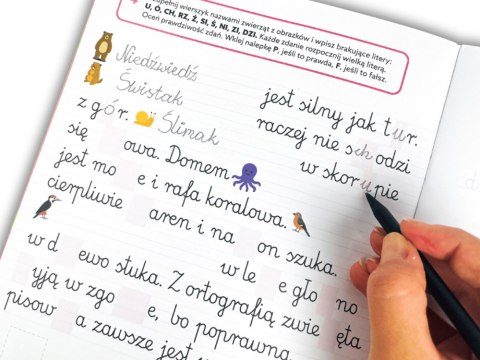 zupełnij wierszyk nazwami zwierząt z obrazków i wpisz brakujące litery:
U, Ó, CH, RZ, Ż, SI, Ś, NI, ZI, DZI. Każde zdanie rozpocznij wielką literą.
Oceń prawdziwość zdań. Wklej nalepkę P, jeśli to prawda, F, jeśli to fałsz.
Niedźwiedź jest silny jak tur.
Świstak raczej nie schodzi
z gór. Ślimak w skorupie
się owa. Domem
jest mo e i rafa koralowa.
cierpliwie aren i na on szuka.
w le e gło no
w d ewo stuka. Z ortografią zwie ęta
yją w zgo e, bo poprawna
pisow a zawsze jest